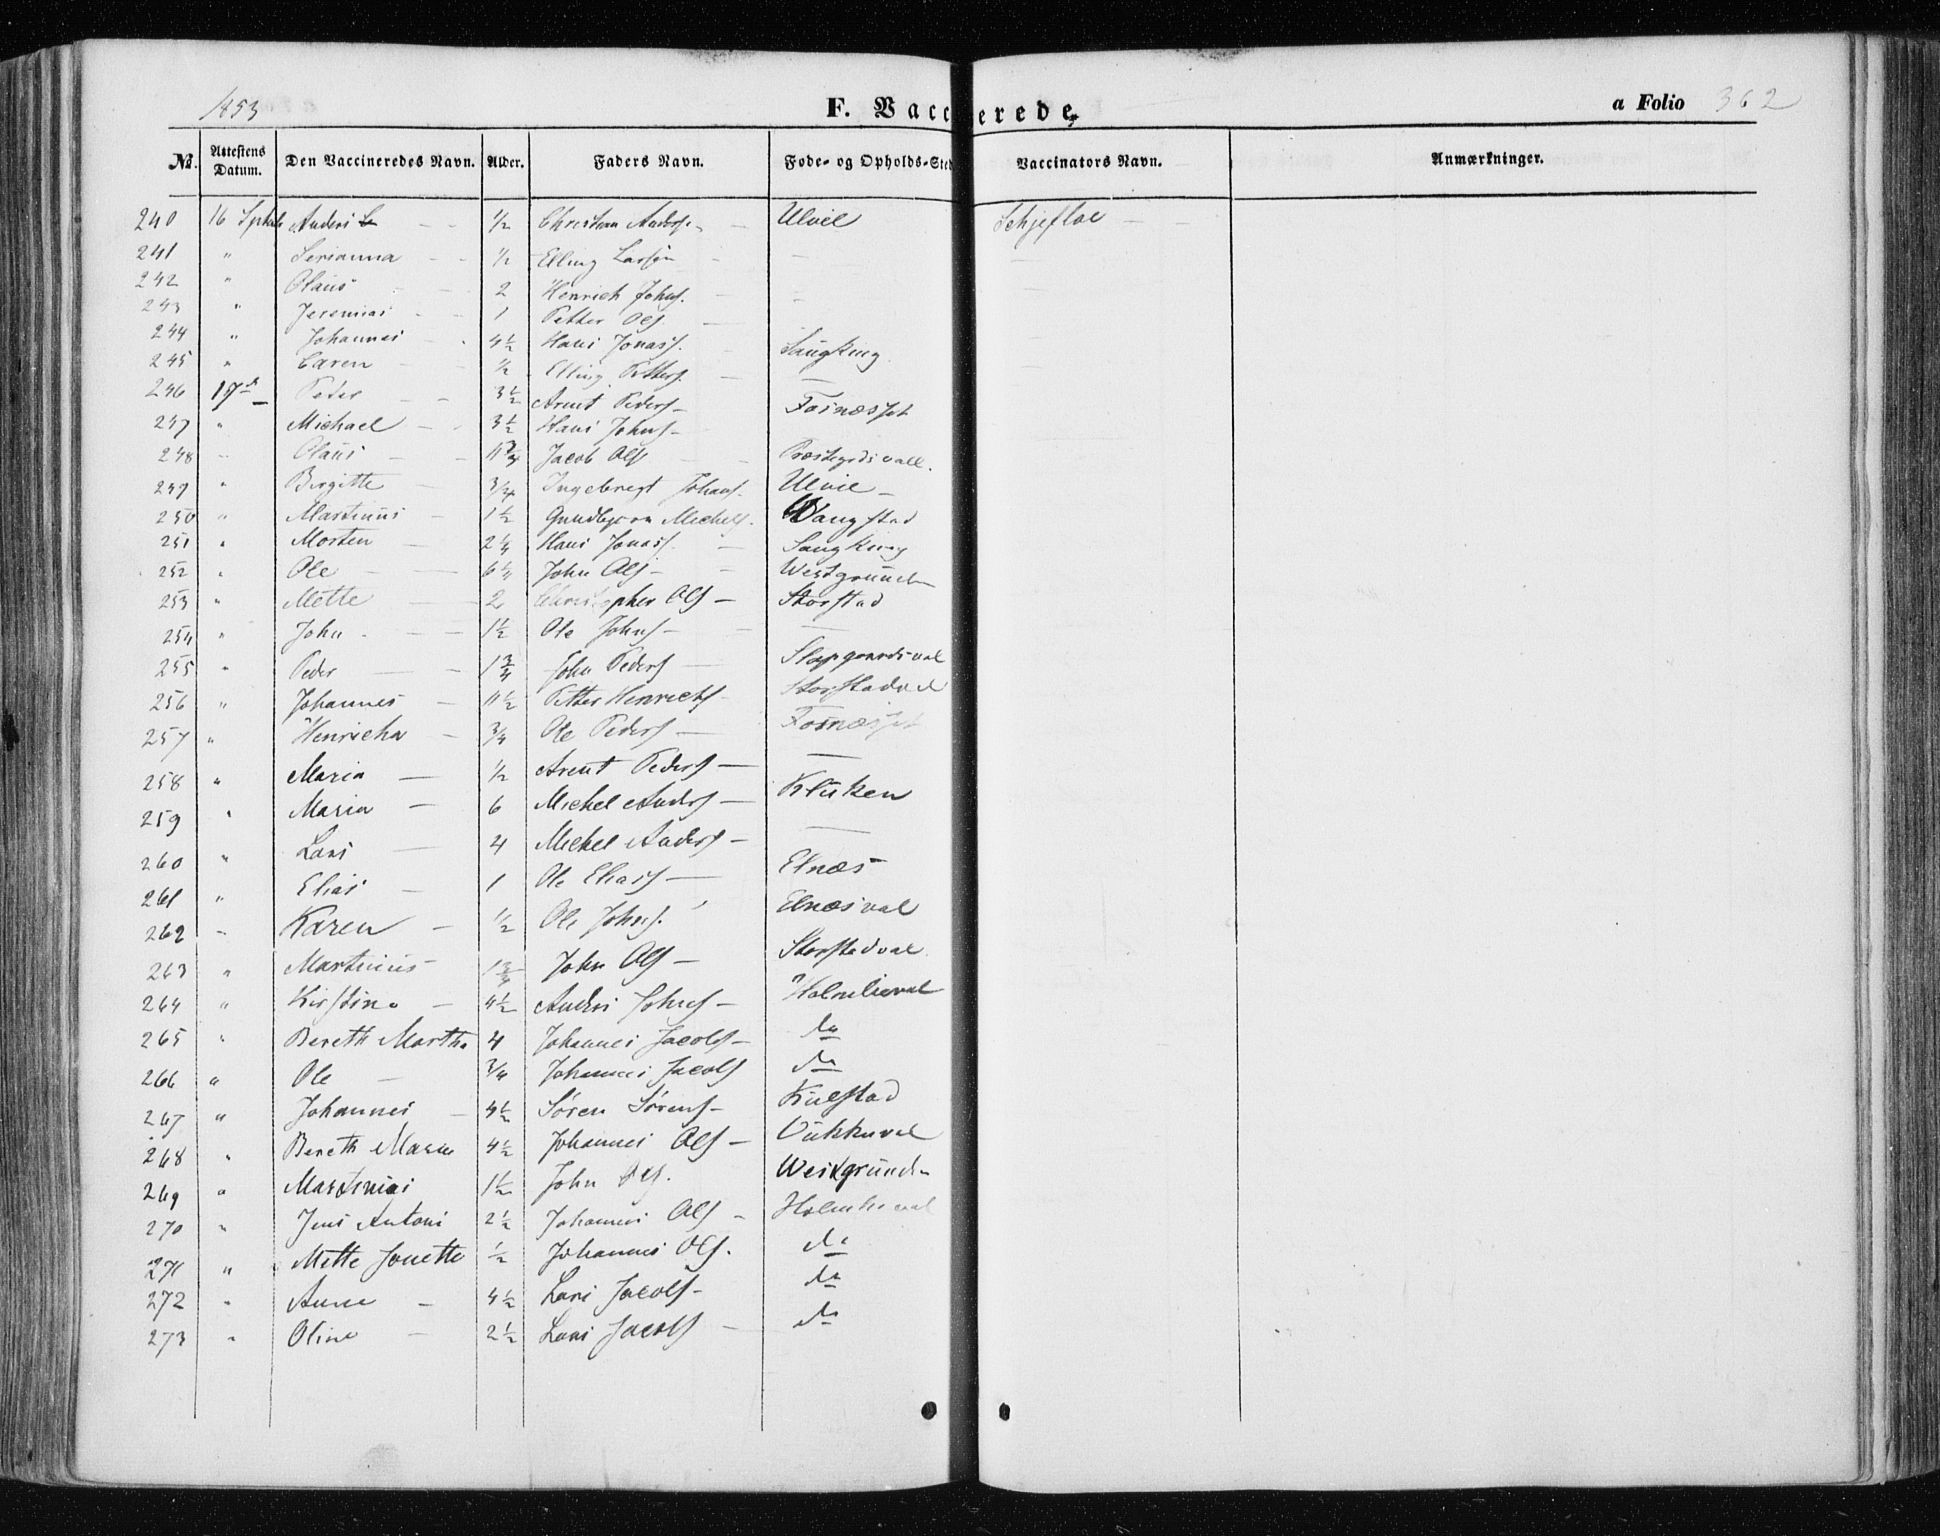 1853 F. Vaccinerede, a Folio 362
No. Attestens Datum. Den Vaccineredes Navn. Alder. Faders Navn. Føde- og Opholds-Sted Vaccinators Navn. Anmærkninger.
240 16 Anders 1/2 Christian Anders. Ulvil Schjefloe
241 " Serianna 1/2 Elling Larsen —
242 " Olaus 2 Henrich Johns. —
243 " Jeremias 1 Petter Ols.
244 " Johannes 4 1/2 Hans Jonass.
245 " Caren 1/2 Elling Petters. —
246 17 Peder 3 1/2 Arent Peders. Fornæsset
247 " Michael 3 1/2 Hans Johns.
248 " Olaus Jacob Ols.
249 " Birgitte 3/4 Ingebregt Johans. Ulvil
250 " Martinus 1 1/2 Michels. Wangstad
251 " Morten 2 1/4 Hans Jonass.
252 " Ole 6 1/4 John Ols. Westgrunden
253 " Mette 2 Christopher Ols. Storstad
254 " John 1 1/2 Ole Johns. —
255 " Peder 1 3/4 John Peders.
256 " Johannes Petter Henrichs.
257 " Henricha 3/4 Ole Peders. Fornæsset
258 " Maria 1/2 Arent Peders. —
259 " Maria 6 Michel Anders. Kluken
260 " Lars 4 Michel Anders. —
261 " Elias 1 Ole Elias. Elnæs
262 " Karen 1/2 Ole Johns. Elnæsval
263 " Martinus 1 3/4 John Ols. Storstadval
264 " Kirstine 4 1/2 Anders Johns. Holmlieval
265 " Bereth Martha 4 Johannes Jacobs. do
266 " Ole 3/4 Johannes Jacobs. do
267 " Johannes 4 1/2 Søren Sørens. Kulstad
268 " Bereth Maria 4 1/2 Johannes Ols. Vukkuval
269 " 1 1/2 John Ols. Westgrunden
270 " Jens Antoni 2 1/2 Johannes Ols. Holmlieval
271 " Mette Jonette 1/2 Johannes Ols. do
272 " Anne 4 1/2 Lars Jacobs. do
273 " Oline 2 1/2 Lars Jacobs. do